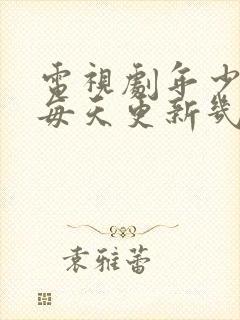 電視劇年少
每天更新幾
袁雅蕾